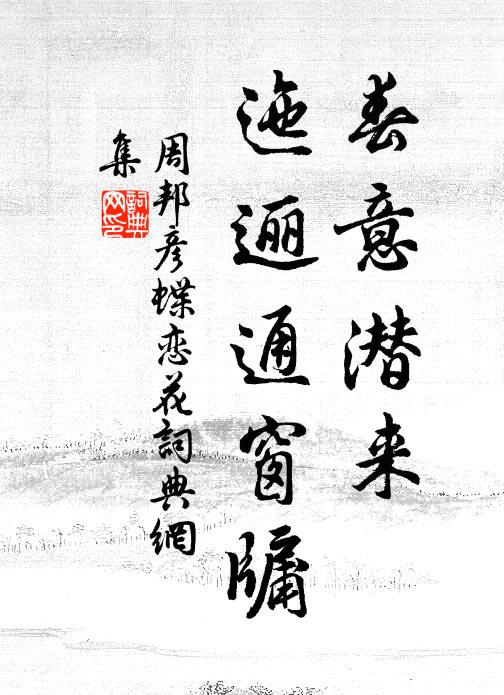 春意潜来
迤逦通窗牖
周邦彦蝶恋花詞典網
集
詞典网印